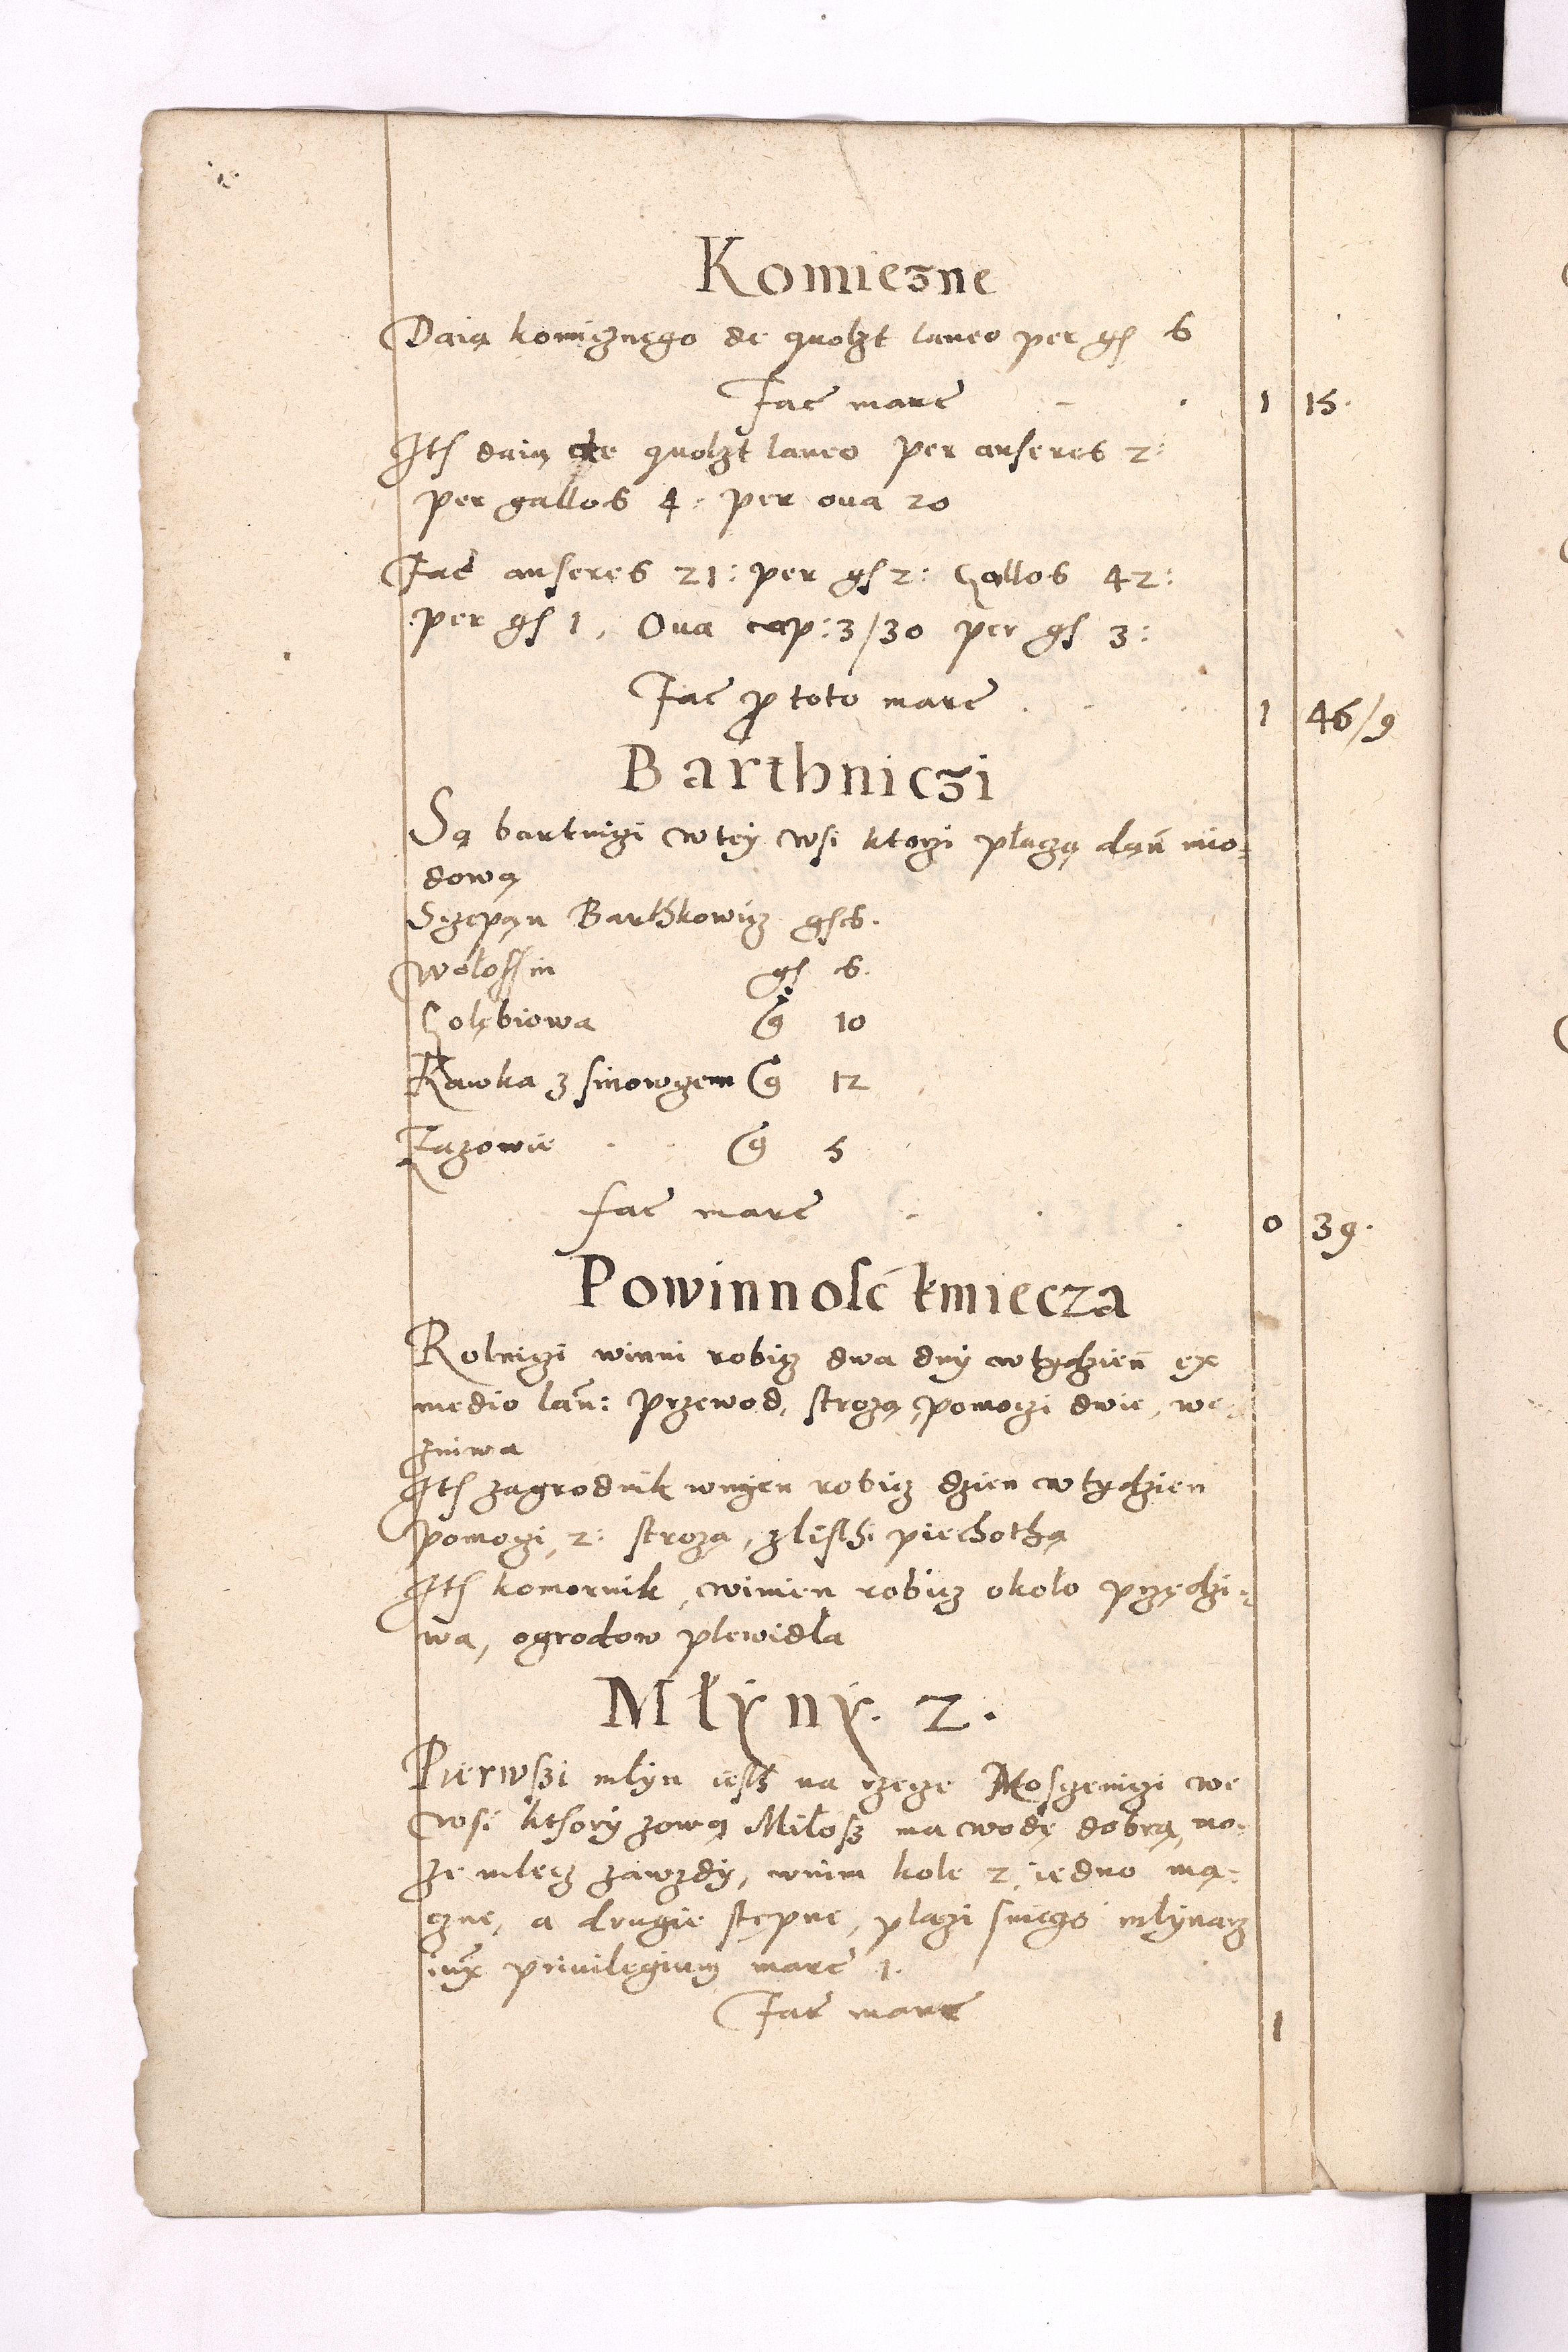 Komiezne
Daią komięznęgo de quolzt laneo per gs 6
Fac marc 1 15.
Its daią de quolzt laneo per anseres 2:
per gallos 4: per oua 20
Fac anseres 21: per gs 2: Gallos 42:
per gs 1, Oua cap: 3/30 per gs 3:
Fac p toto marc 1 46/9
Barthniczi
Są bartniczi w tey wsi ktorzi płaczą dań mio=
dową
Sczepan Barthkowicz gs 6.
Wołossin gs 6.
Gołębiowa G 10
Kawka z sinowczem G 12
Zazowie G 5
fac marc 0 39.
Powinnosć kmiecza
Rolniczi winni robicz dwa dny w tydzień ex
medio lan: przewod, stroza, pomoczi dwie, we
zniwa
Its zagrodnik winyen robicz dzien w tydzien
pomoczi, 2: stroza, z listhi piechothą
Its komornik, winien robicz około przędzi=
wa, ogrodow plewidla
Młyny. 2.
Pierwszi młyn iesth na rzecze Mosczeniczi we
wsi kthory zową Miłosz ma wodę dobrą, mo=
ze mlecz zawzdy, w nim kole 2, iedno mą=
czne, a drugie stępne, płaczi s niego młynarz
iux priuilegium marc 1.
Fac marc 1